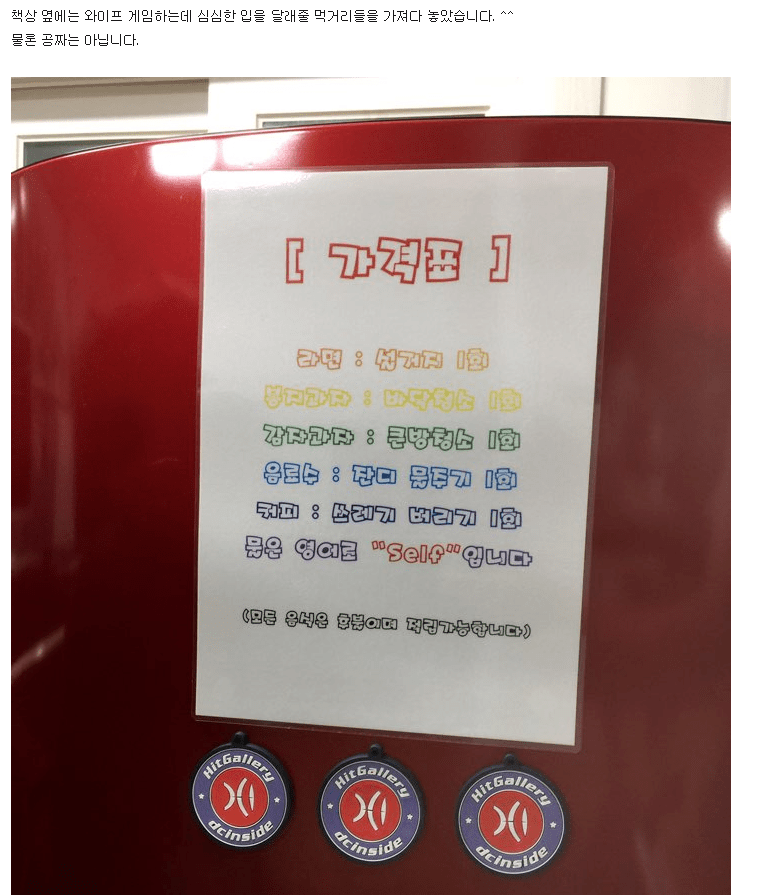 책상 옆에는 와이프 게임하는데 심심한 입을 달래줄 먹거리들을 가져다 놓았습니다. ^^
물론 공짜는 아닙니다.
[ 가격표 ]
라면 : 설거지 1회
봉지과자 : 바닥청소 1회
감자과자 : 큰방청소 1회
음료수 : 잔디 물주기 1회
커피 : 쓰레기 버리기 1회
물은 영어로 "Self"입니다
(모든 음식은 후불이며 적립가능합니다)
HitGallery
dcinside
HitGallery
dcinside
HitGallery
dcinside